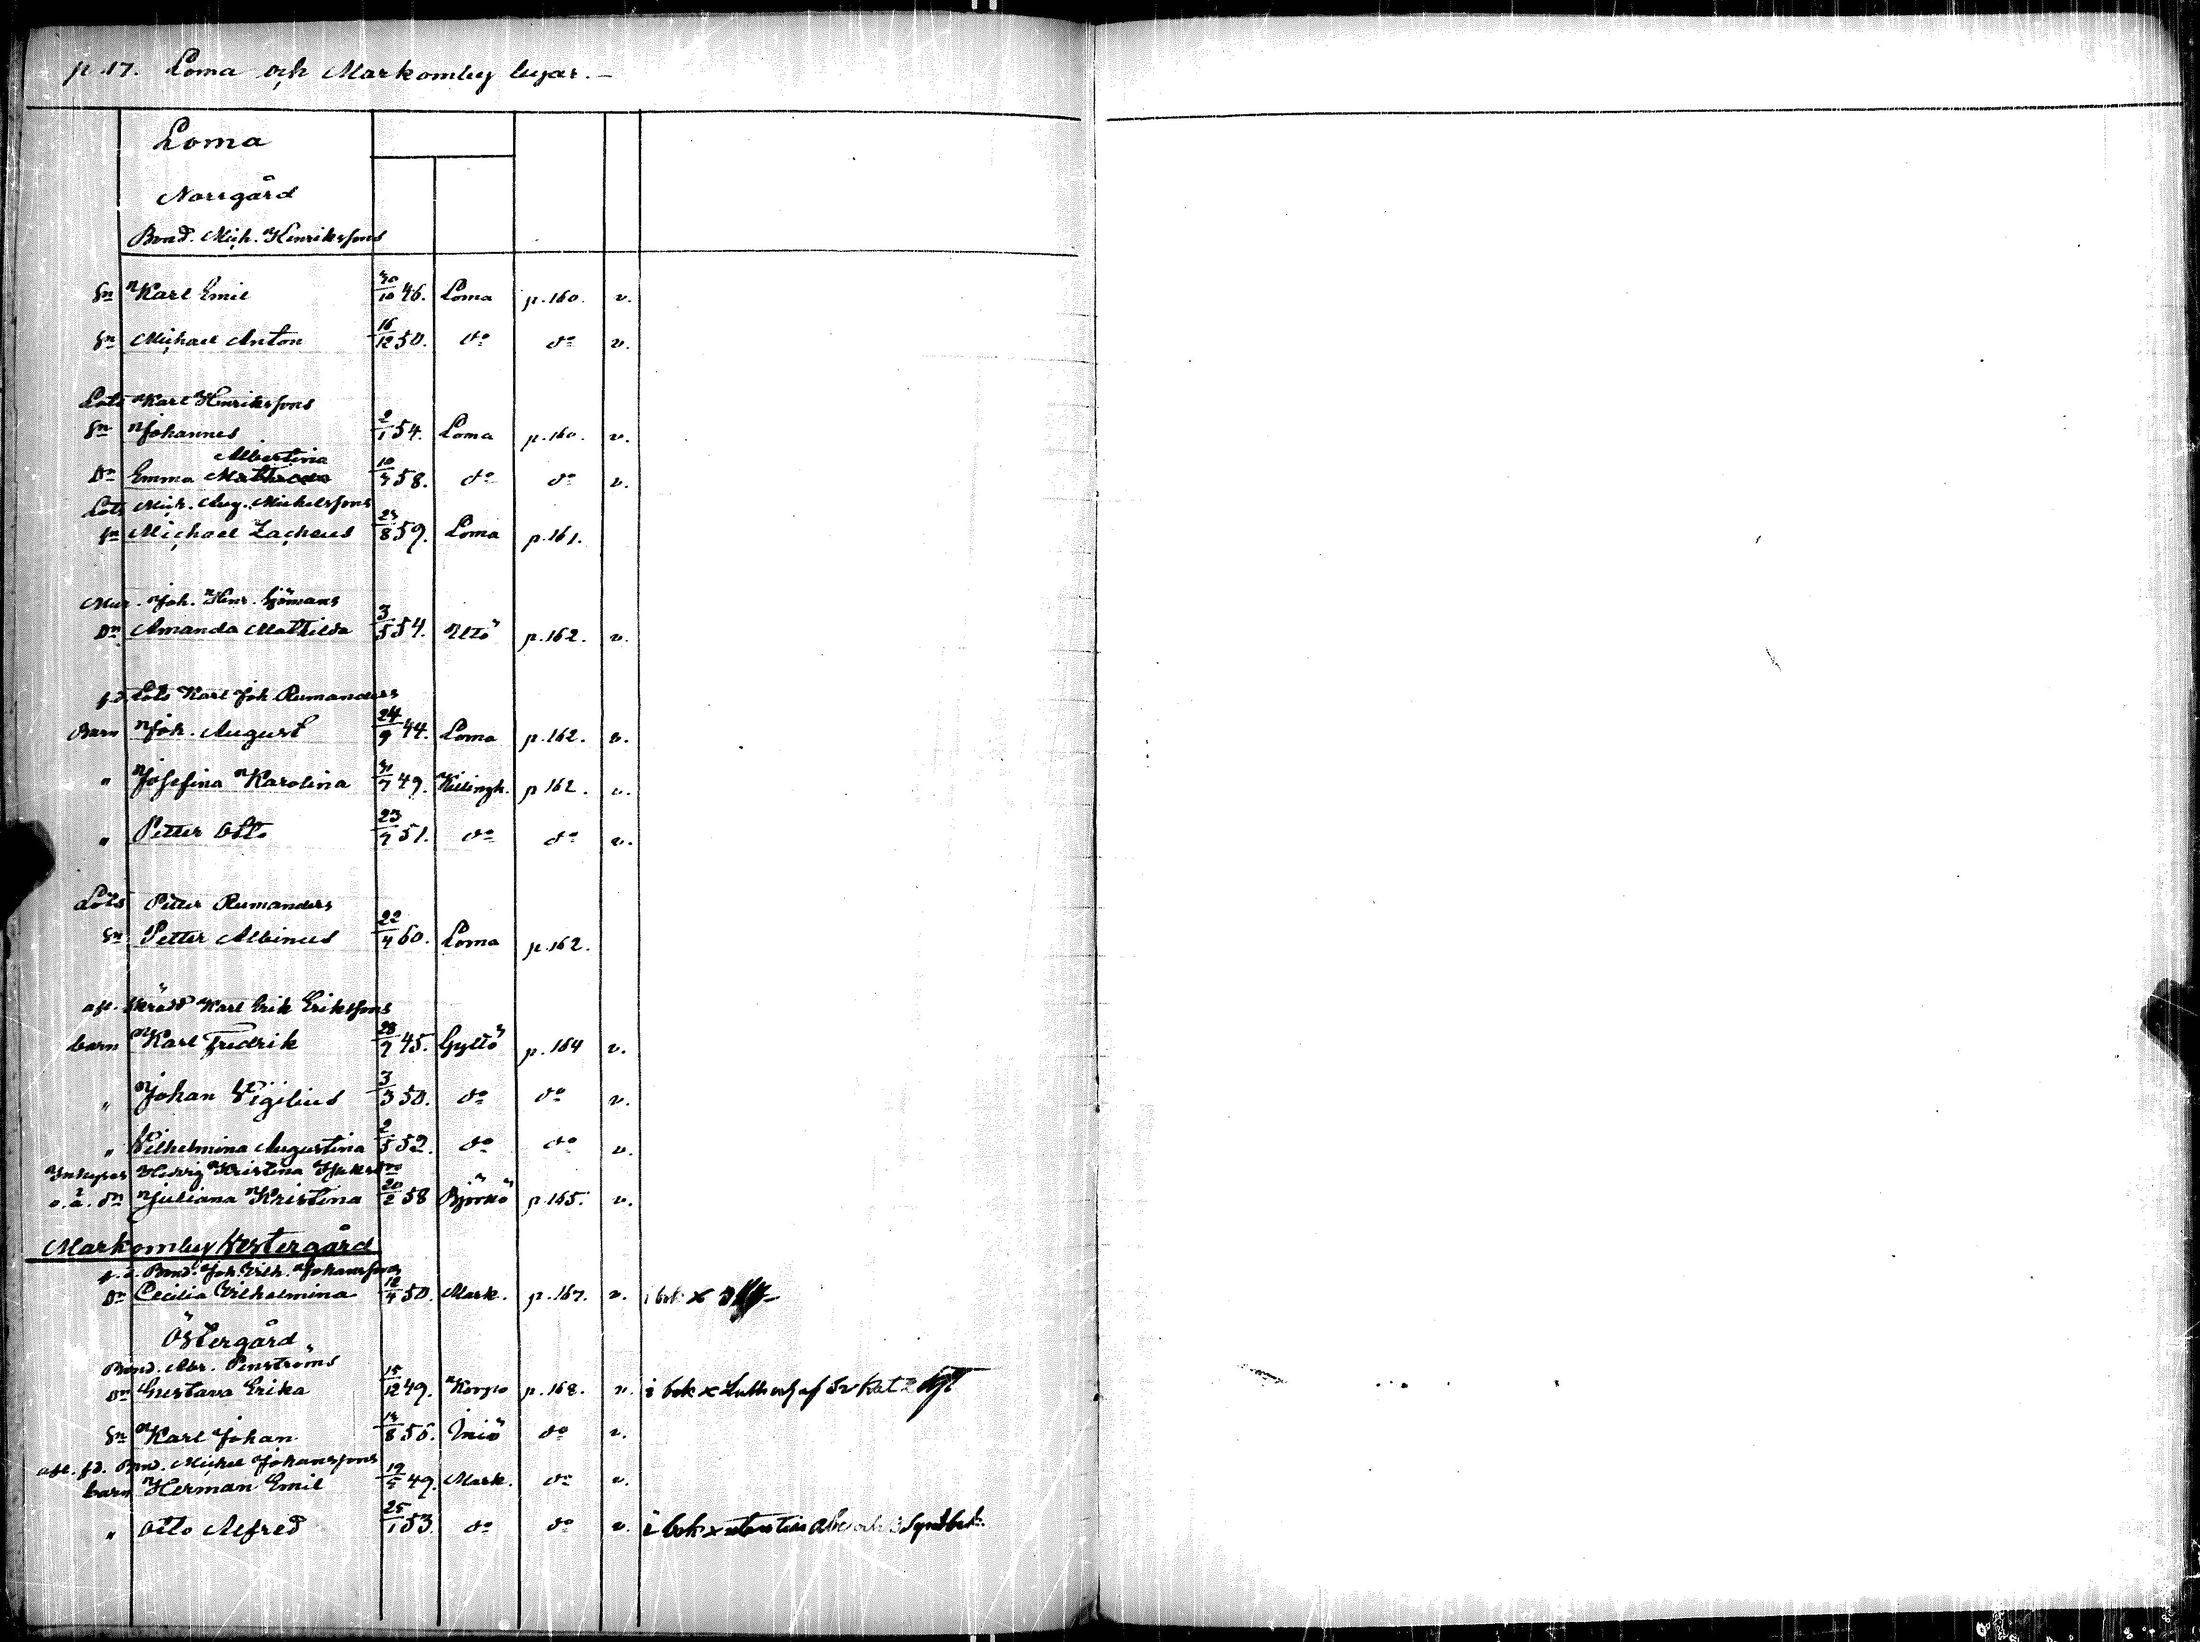 p. 17. Loma och Markomby byar.
Loma
Norrgård
Bond. Mich. Henrikssons
sn Karl Emil 30/10 46. Loma p. 160. v.
sn Michael Anton 16/12 50. do do v.
Lots Karl Henrikssons
sn Johannes 2/1 54. Loma p. 160. v.
Albertina
Dn Emma 10/3 58. do do v.
Lots Mich. Aug. Michelssons
sn Michael Zacheus 23/8 59. Loma p. 161.
Joh. Henr. Sjömans
Dn Amanda Mathilda 3/5 54. Utö p. 162. v.
f.d. Lots Karl Joh. Rumanders
Barn Joh. August 24/9 44. Loma p. 162. v.
" Josefina Karolina 49. Killingh. p. 162. v.
" Petter Otto 51. do do v.
Lots Petter Rumanders
sn Petter Albinus 22/4 60. Loma p. 162.
afl. Skrädd Karl Erik Erikssons
barn Karl Fredrik 45. Gyltö p. 164 v.
" Johan Vigilius 3/3 50. do do v.
" Vilhelmina Augustina 2/5 52. do do v.
Inhyses Hedvig Kristina
o.ä. dn Juliana Kristina 20/2 58 Björkö p. 165. v.
Markomby Vestergård
f.d. Bond. Joh. Vilh. Johanssons
Dn Cecilia Vilhelmina 50. Mark. p. 167. v. i bok x
Östergård
Bond. Abr. Penströms
Dn Gustava Erika 15/12 49. Korpo p. 168. v. i bok x Luth och af Sv Kat 2
sn Karl Johan 56. Iniö do v.
afl. fd. Bond. Michel Johanssons
barn Herman Emil 19/5 49. Mark. do v.
" Otto Alfred 25/1 53. do do v. i bok x utan till Abc och